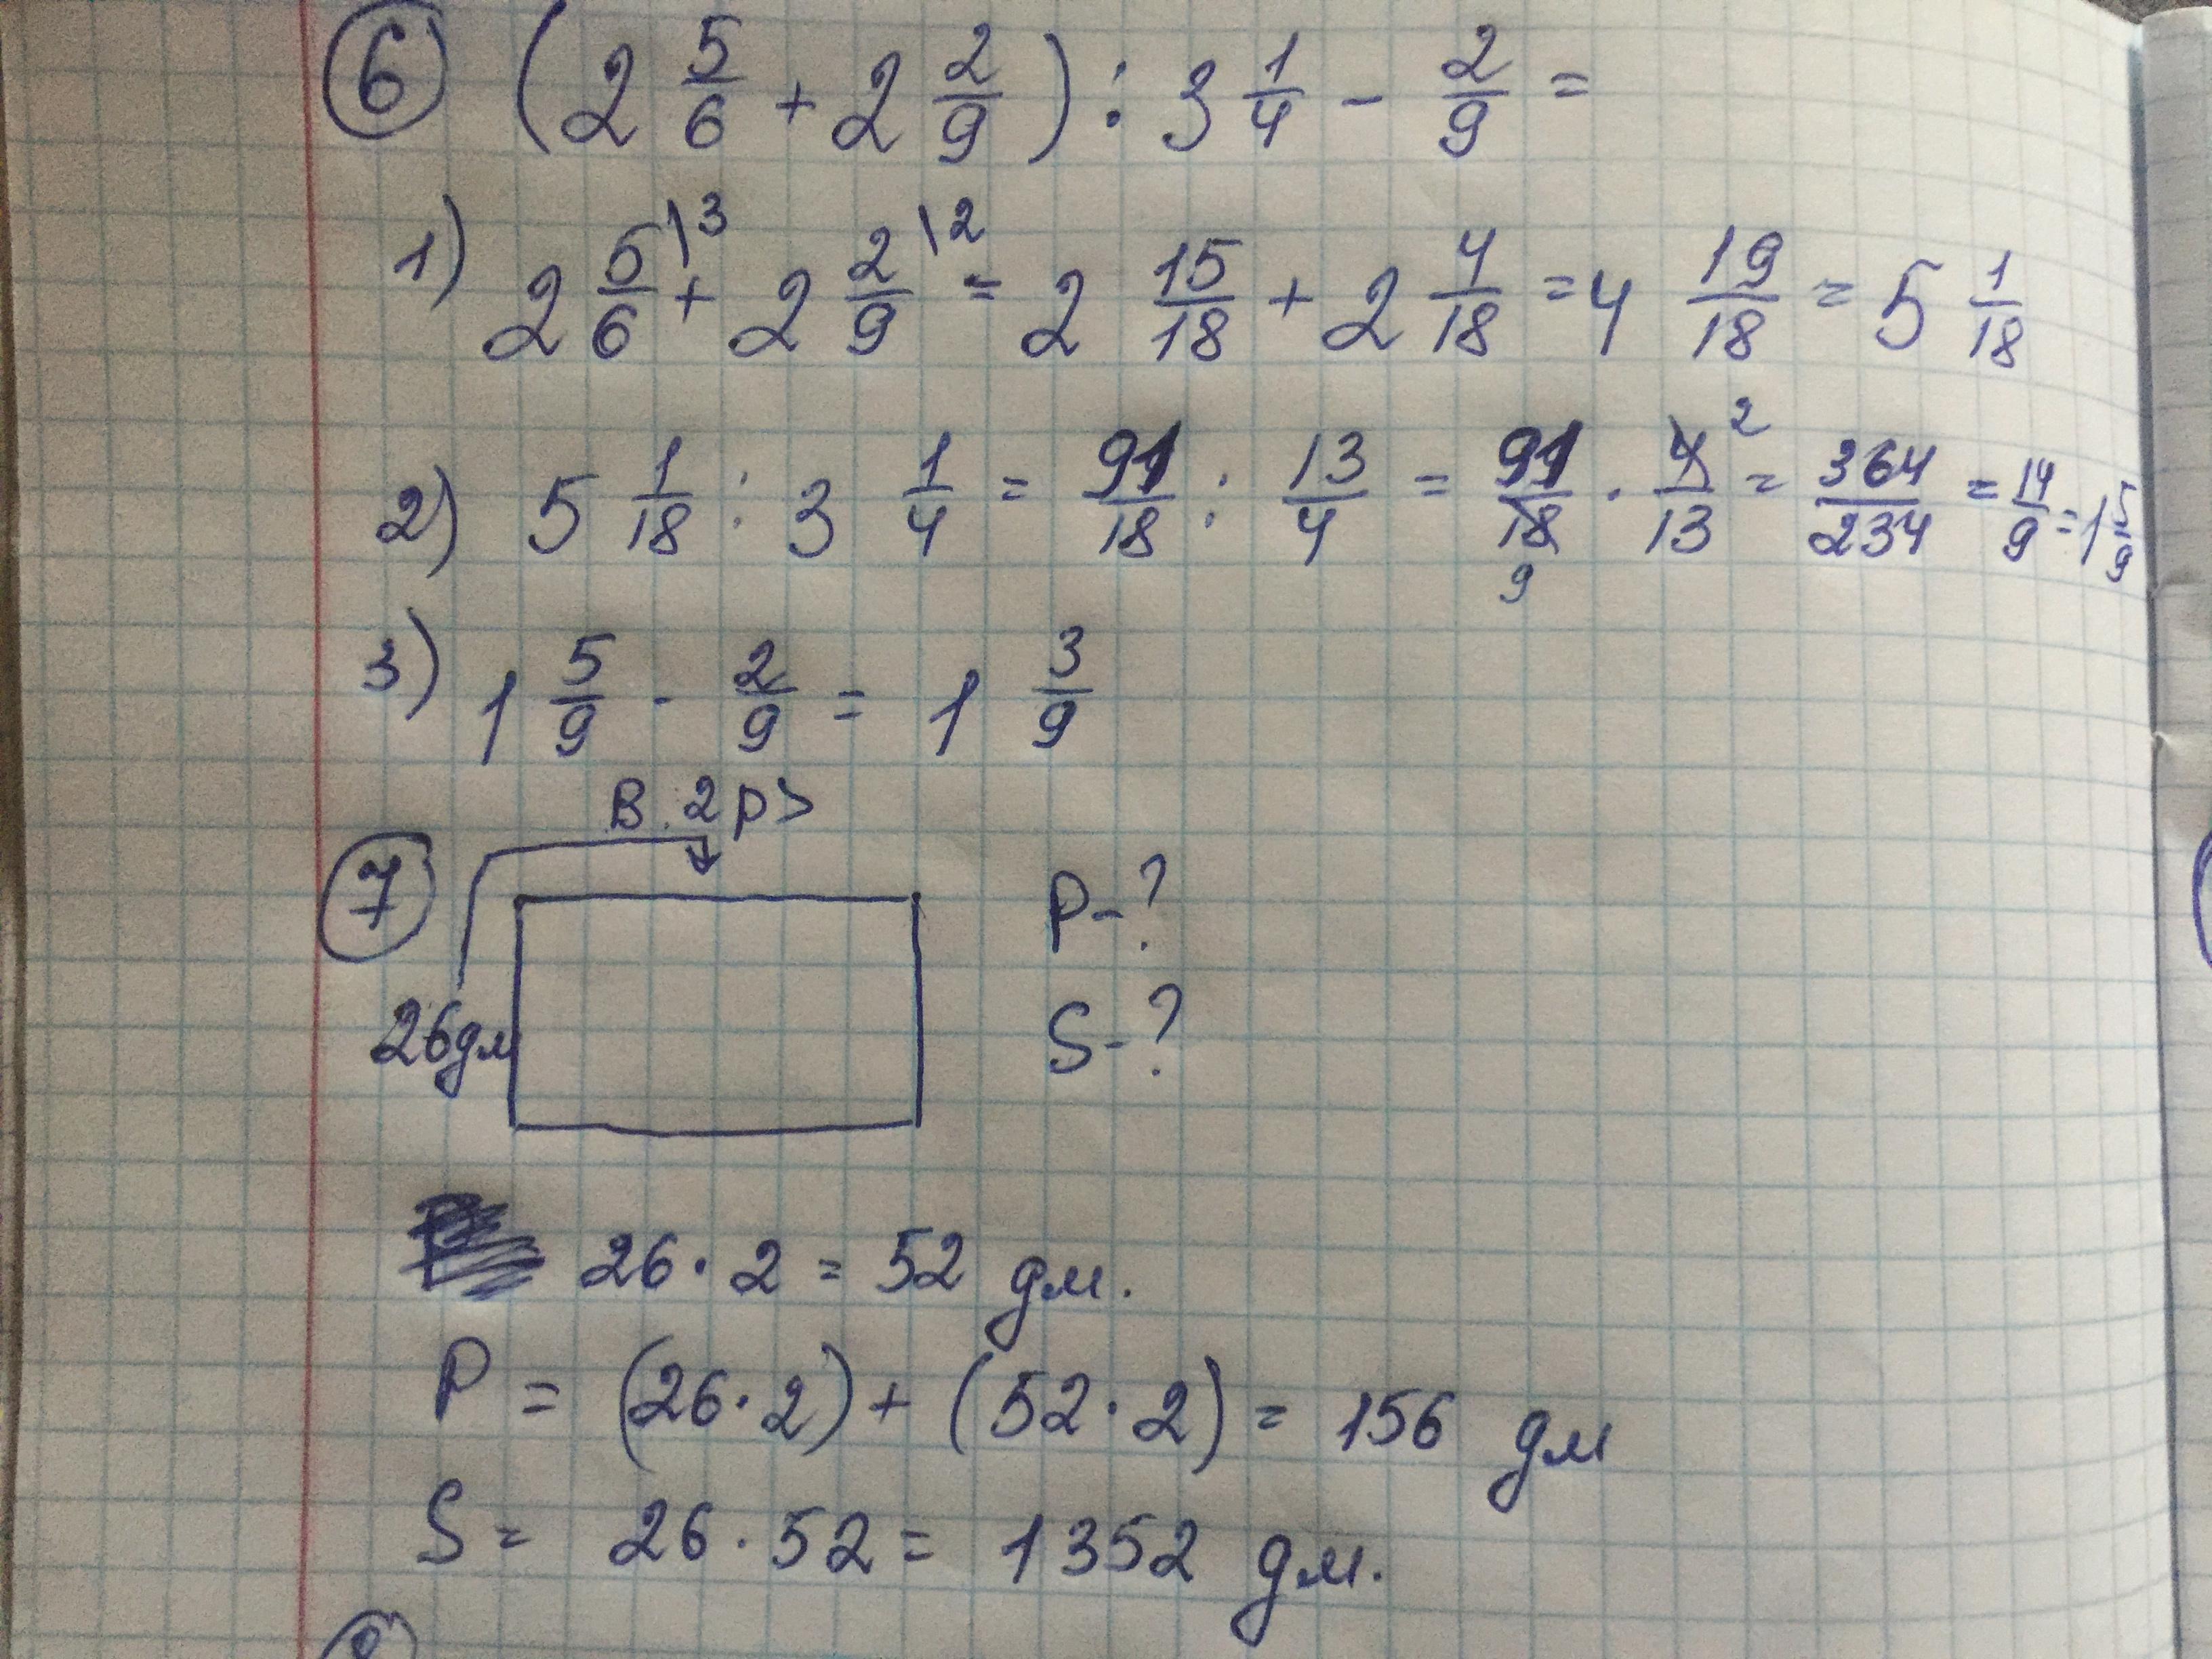 6 (2 5/6 + 2 2/9) : 3 1/4 - 2/9 =
1) 2 5/6 \3 + 2 2/9 \2 = 2 15/18 + 2 4/18 = 4 19/18 = 5 1/18
2) 5 1/18 : 3 1/4 = 91/18 : 13/4 = 91/18 9 · 4/13 2 = 364/234 = 14/9 = 1 5/9
3) 1 5/9 - 2/9 = 1 3/9
В 2 р >
7 P-?
26дм S-?
26 · 2 = 52 дм.
P = (26 · 2) + (52 · 2) = 156 дм
S = 26 · 52 = 1352 дм.